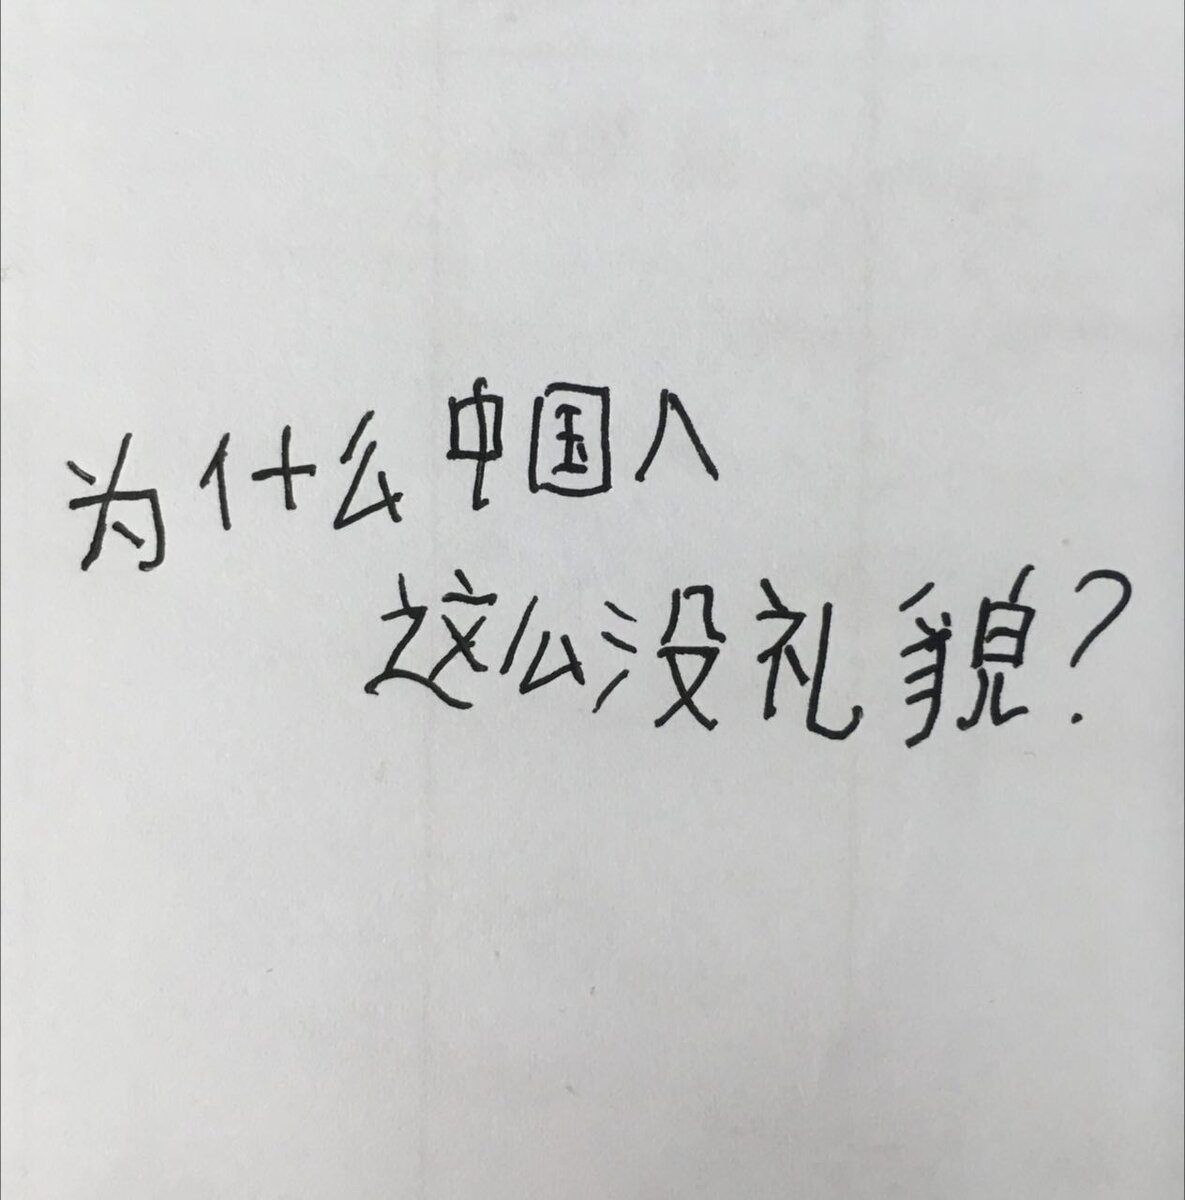 为什么中国人
这么没礼貌?